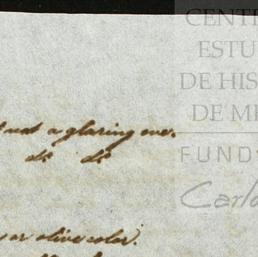 CENT
ESTU
DE HIS
DE M
not a glaring one.
do do
FUND
Carlo
or olive color.